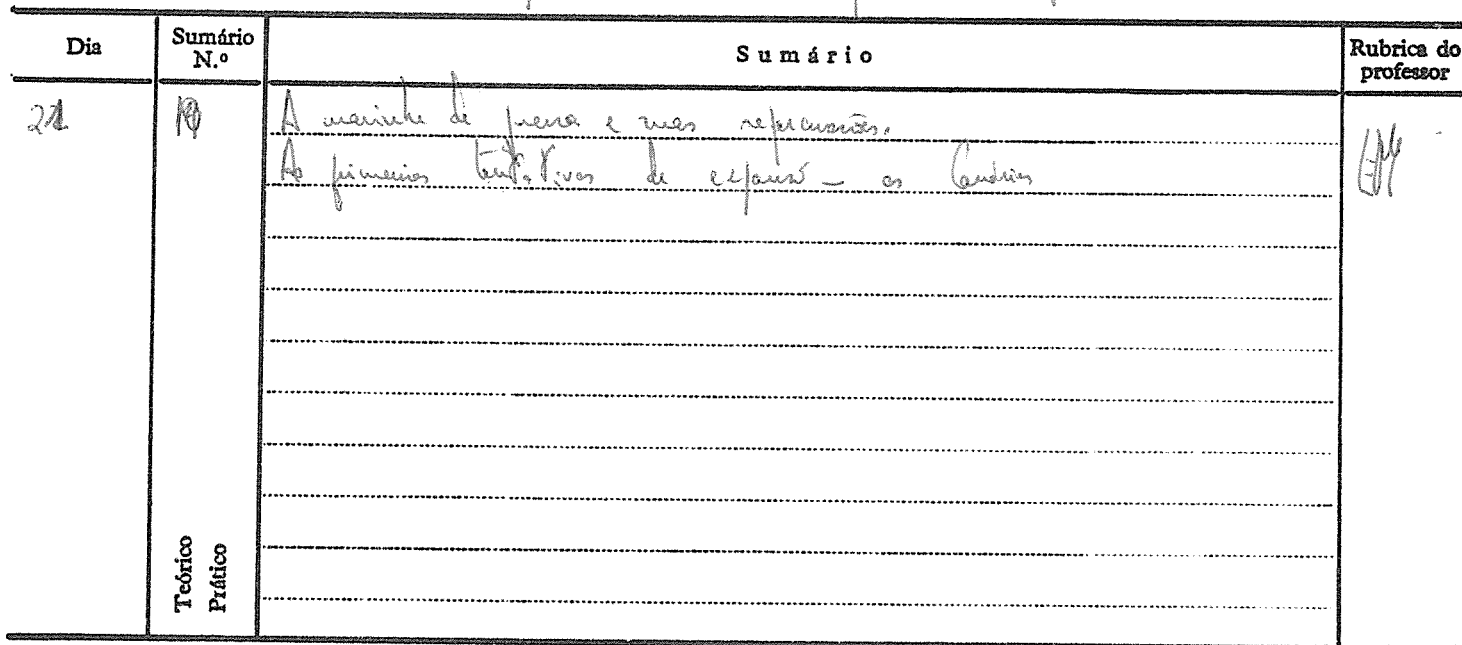 Dia
Sumário N.º
Sumário
Rubrica do professor
21
A marinha de guerra e suas repercussões.
As primeiras tentativas de expansão – as Canárias
Teórico
Prático